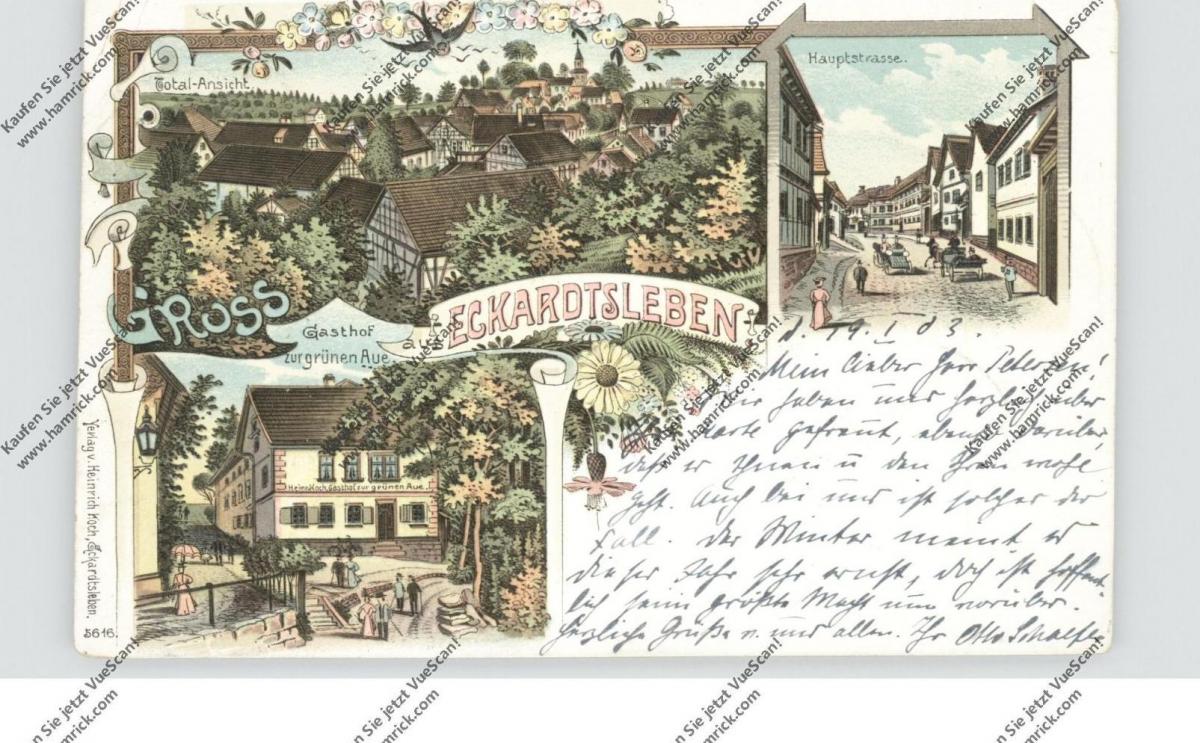 Total-Ansicht.
Hauptstrasse.
GRUSS
aus
ECKARDTSLEBEN
Gasthof
zur grünen Aue.
Heinr. Koch, Gasthof zur grünen Aue.
Verlag v. Heinrich Koch, Eckardtsleben.
5616.
d. 19. I 03.
Mein lieber Herr Petersen!
Wir haben uns herzlich über
Karte gefreut, ebenso darüber,
daß es Ihnen u den Ihren wohl
geht. Auch bei uns ist solches der
Fall. Der Winter meint es
dieses Jahr sehr ernst, doch ist hoffent
lich seine größte Macht nun vorüber.
Herzliche Grüße v. uns allen. Ihr Otto Schaefer
Kaufen Sie jetzt VueScan!
www.hamrick.com